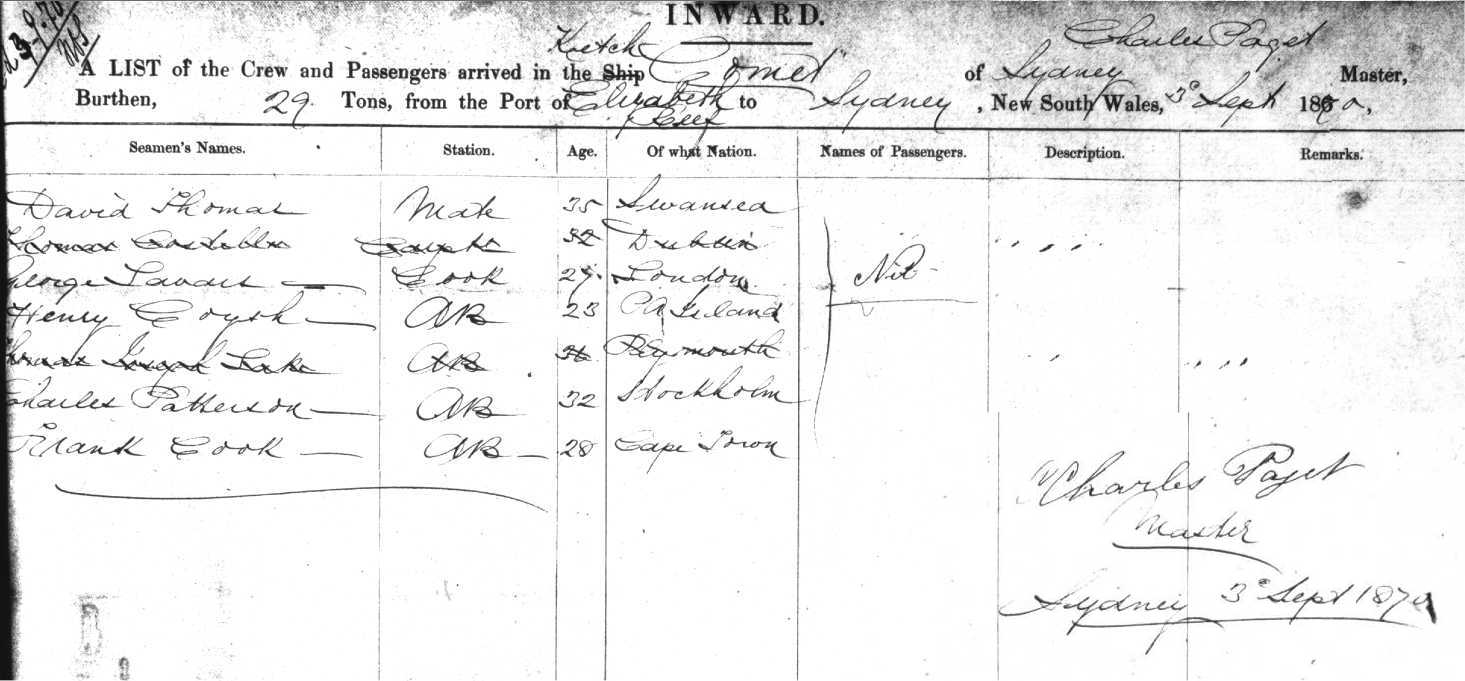 INWARD.
Ketch Charles Paget
A LIST of the Crew and Passengers arrived in the Ship Comet of Sydney Master,
Burthen, 29 Tons, from the Port of Elizabeth Reef to Sydney, New South Wales, 3d Sept 1870,
Seamen's Names. Station. Age. Of what Nation. Names of Passengers. Description. Remarks.
David Thomas Mate 35 Swansea
Thomas 32 Dublin
George Cook 29 London Nil
Henry AB 23 Island
Thomas Joseph AB 36 Plymouth
Charles Patterson AB 32 Stockholm
Frank Cook AB 28 Cape Town
Charles Paget
Master
Sydney 3d Sept 1870